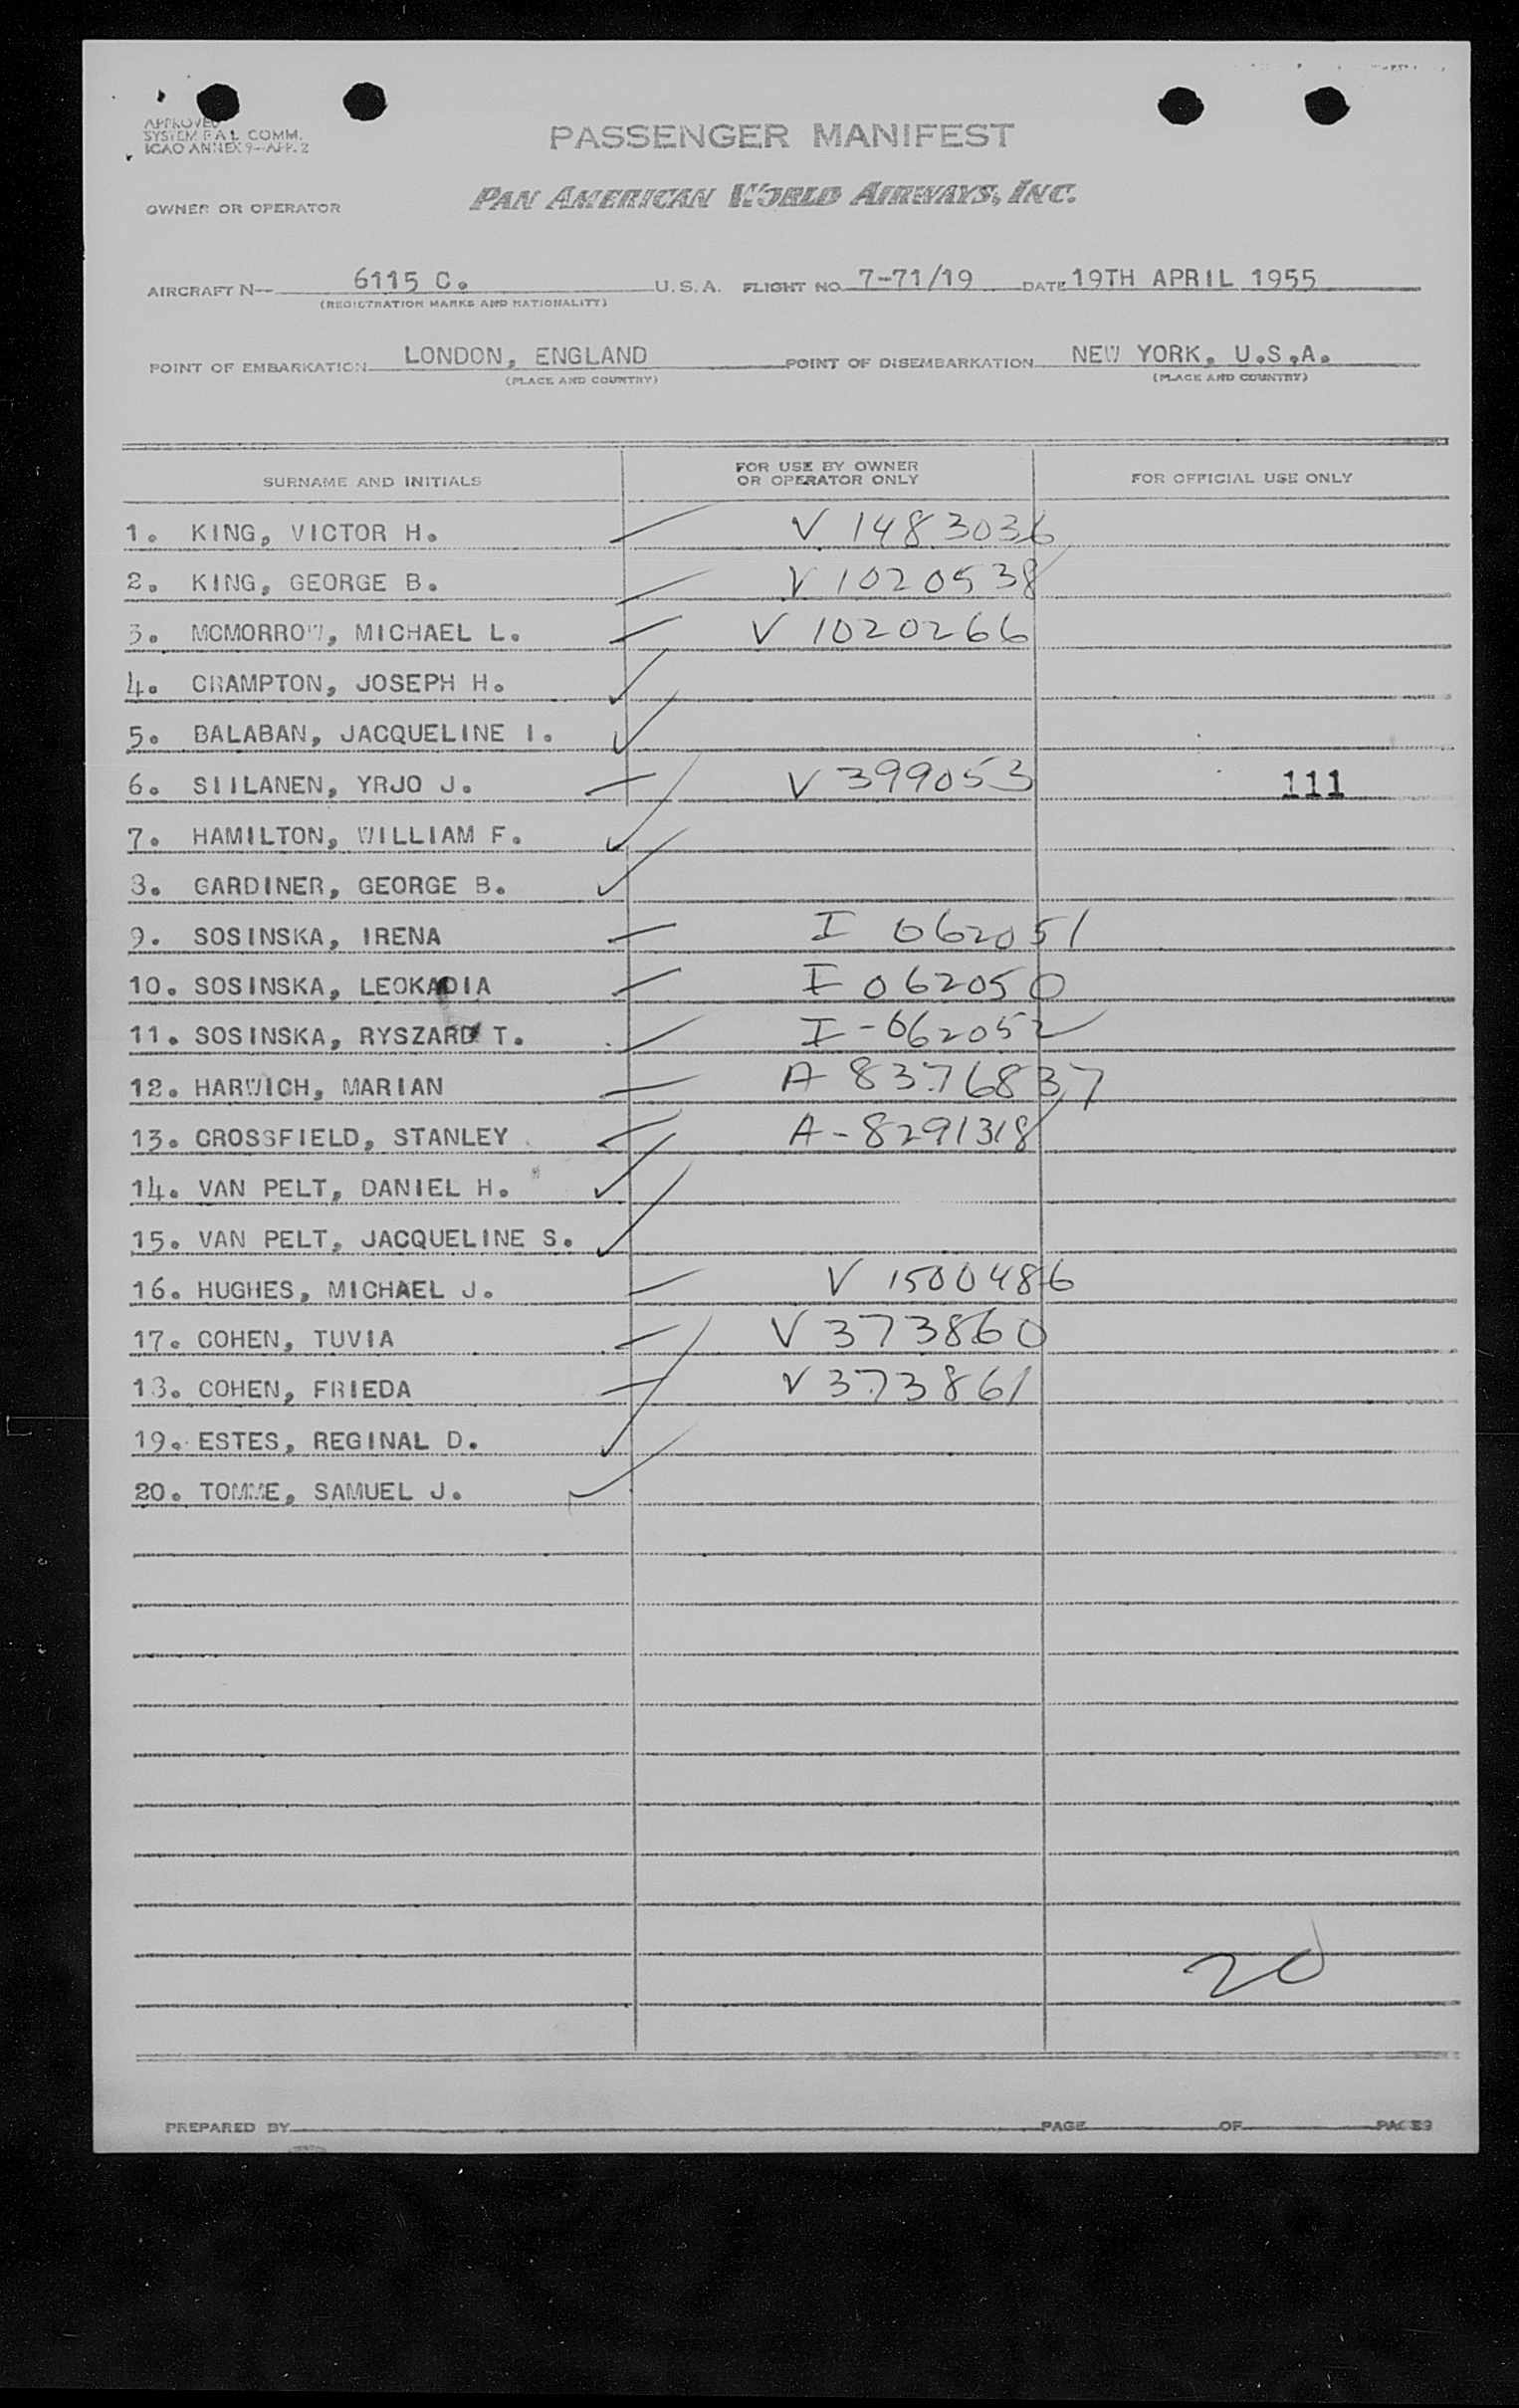 APPROVED
SYSTEM F.A.L. COMM.
ICAO ANNEX 9-APP. 2
PASSENGER MANIFEST
OWNER OR OPERATOR PAN AMERICAN WORLD AIRWAYS, INC.
AIRCRAFT N- 6115 C. U.S.A. FLIGHT NO. 7-71/19 DATE 19TH APRIL 1955
(REGISTRATION MARKS AND NATIONALITY)
POINT OF EMBARKATION LONDON, ENGLAND POINT OF DISEMBARKATION NEW YORK, U.S.A.
(PLACE AND COUNTRY) (PLACE AND COUNTRY)
SURNAME AND INITIALS FOR USE BY OWNER OR OPERATOR ONLY FOR OFFICIAL USE ONLY
1. KING, VICTOR H. V 1483036
2. KING, GEORGE B. V 1020538
3. MCMORROW, MICHAEL L. V 1020266
4. CRAMPTON, JOSEPH H.
5. BALABAN, JACQUELINE I.
6. SIILANEN, YRJO J. V 399053 111
7. HAMILTON, WILLIAM F.
8. GARDINER, GEORGE B.
9. SOSINSKA, IRENA I 062051
10. SOSINSKA, LEOKADIA I 062050
11. SOSINSKA, RYSZARD T. I-062052
12. HARWICH, MARIAN A 8376837
13. CROSSFIELD, STANLEY A-8291318
14. VAN PELT, DANIEL H.
15. VAN PELT, JACQUELINE S.
16. HUGHES, MICHAEL J. V 1500486
17. COHEN, TUVIA V 373860
18. COHEN, FRIEDA V 373861
19. ESTES, REGINAL D.
20. TOMME, SAMUEL J.
20
PREPARED BY PAGE OF PAGES